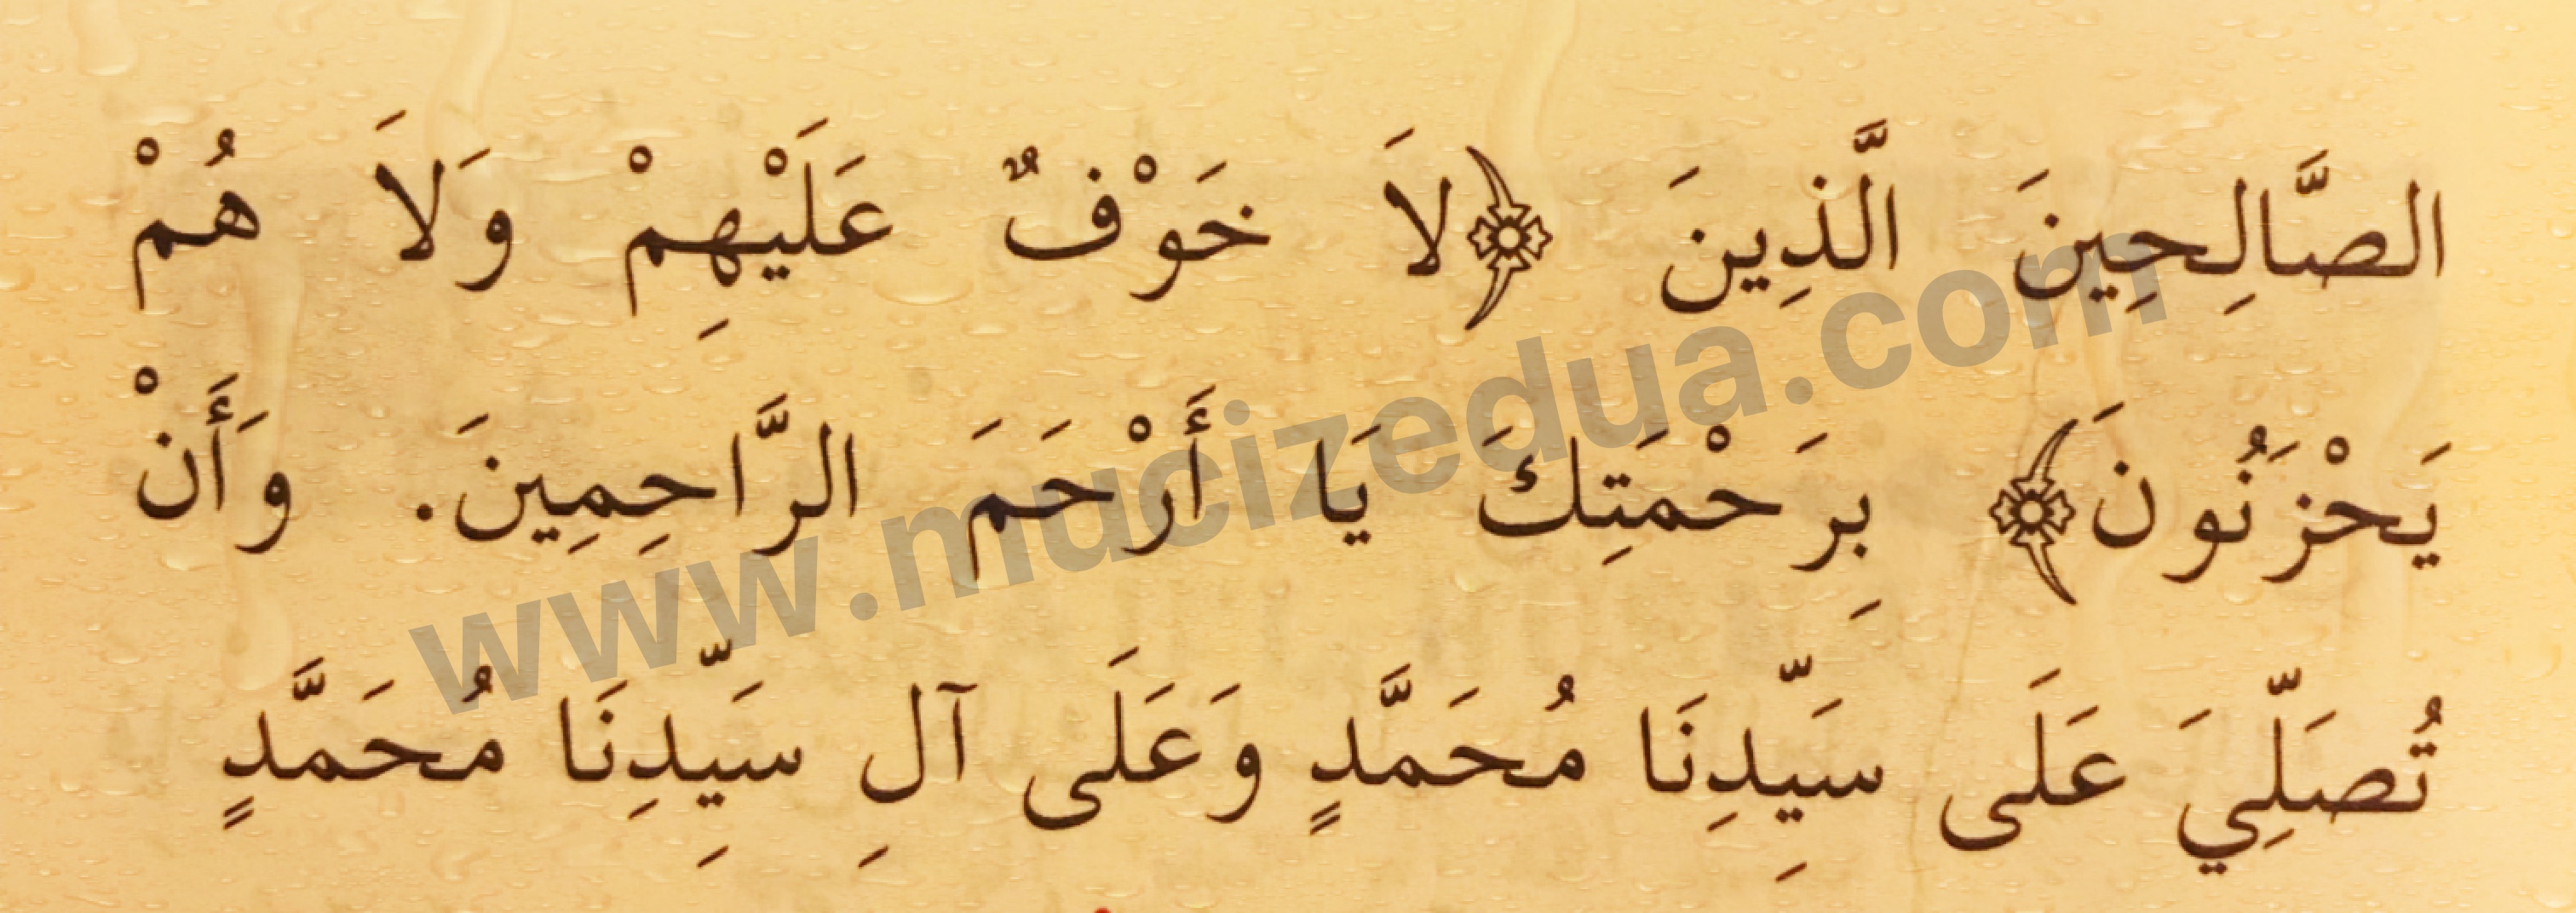 الصَّالِحِينَ الَّذِينَ ﴿لَا خَوْفٌ عَلَيْهِمْ وَلَا هُمْ
يَحْزَنُونَ﴾ بِرَحْمَتِكَ يَا أَرْحَمَ الرَّاحِمِينَ. وَأَنْ
تُصَلِّيَ عَلَى سَيِّدِنَا مُحَمَّدٍ وَعَلَى آلِ سَيِّدِنَا مُحَمَّدٍ
www.mucizedua.com